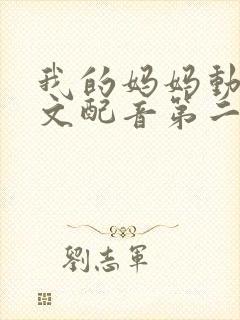 我的妈妈動
文配音第二
劉志軍